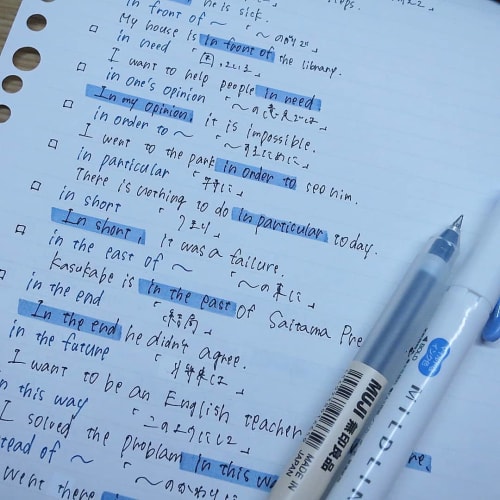 he is sick.
in front of ~ 「~の前に」
My house is in front of the library.
in need 「困っている」
I want to help people in need.
in one's opinion 「~の意見では」
In my opinion, it is impossible.
in order to ~ 「~するために」
I went to the park in order to see him.
in particular 「特に」
There is nothing to do in particular today.
in short 「つまり」
In short, it was a failure.
in the east of ~ 「~の東に」
Kasukabe is in the east of Saitama Pre
in the end 「結局」
In the end he didn't agree.
in the future 「将来は」
I want to be an English teacher
in this way 「このようにして」
I solved the problem in this wa
stead of ~ 「~のかわりに」
went there in
MUJI 無印良品
MADE IN JAPAN
MILDLIN